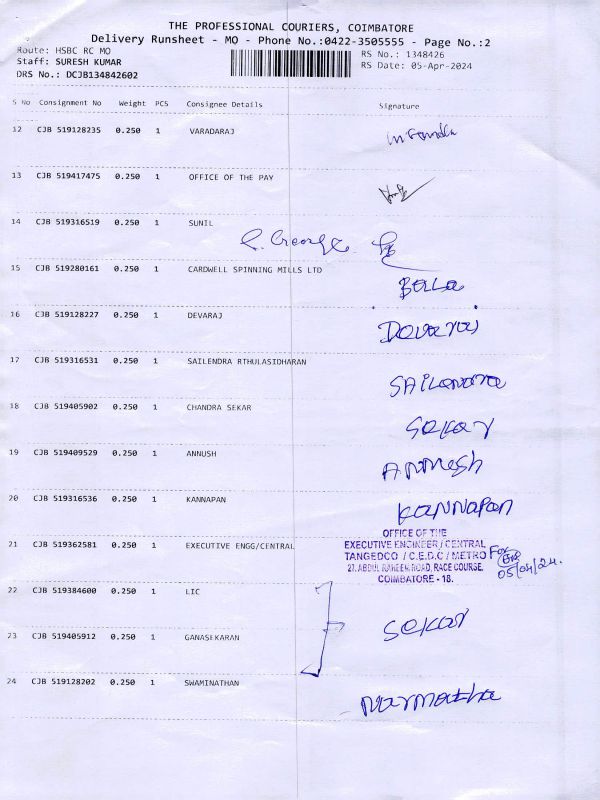 THE PROFESSIONAL COURIERS, COIMBATORE
Delivery Runsheet - MO - Phone No.:0422-3505555 - Page No.:2
Route: HSBC RC MO
RS No.: 1348426
Staff: SURESH KUMAR
RS Date: 05-Apr-2024
DRS No.: DCJB134842602
S No Consignment No Weight PCS Consignee Details Signature
12 CJB 519128235 0.250 1 VARADARAJ
13 CJB 519417475 0.250 1 OFFICE OF THE PAY
14 CJB 519316519 0.250 1 SUNIL
George
15 CJB 519280161 0.250 1 CARDWELL SPINNING MILLS LTD
16 CJB 519128227 0.250 1 DEVARAJ
Devaraj
17 CJB 519316531 0.250 1 SAILENDRA RTHULASIDHARAN
18 CJB 519405902 0.250 1 CHANDRA SEKAR
Sekar
19 CJB 519409529 0.250 1 ANNUSH
20 CJB 519316536 0.250 1 KANNAPAN
KANNAPAN
21 CJB 519362581 0.250 1 EXECUTIVE ENGG/CENTRAL
OFFICE OF THE
EXECUTIVE ENGINEER / CENTRAL
TANGEDCO / C.E.D.C / METRO For
27, ABDUL RAHEEM ROAD, RACE COURSE,
COIMBATORE - 18.
05/04/24.
22 CJB 519384600 0.250 1 LIC
23 CJB 519405912 0.250 1 GANASEKARAN
Sekar
24 CJB 519128202 0.250 1 SWAMINATHAN
Narmatha